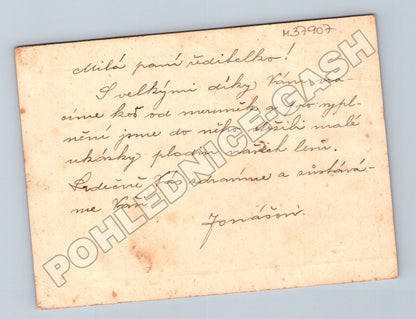 H37907
Milá paní ředitelko!
S velkými díky Vám vra-
címe koš od meruněk a pro vypl-
nění jsme do něho vložili malé
ukázky plodin našich lesů.
Srdečně Vás zdravíme a zůstává-
me Vaši
Jonášovi.
POHLEDNICE-GASH